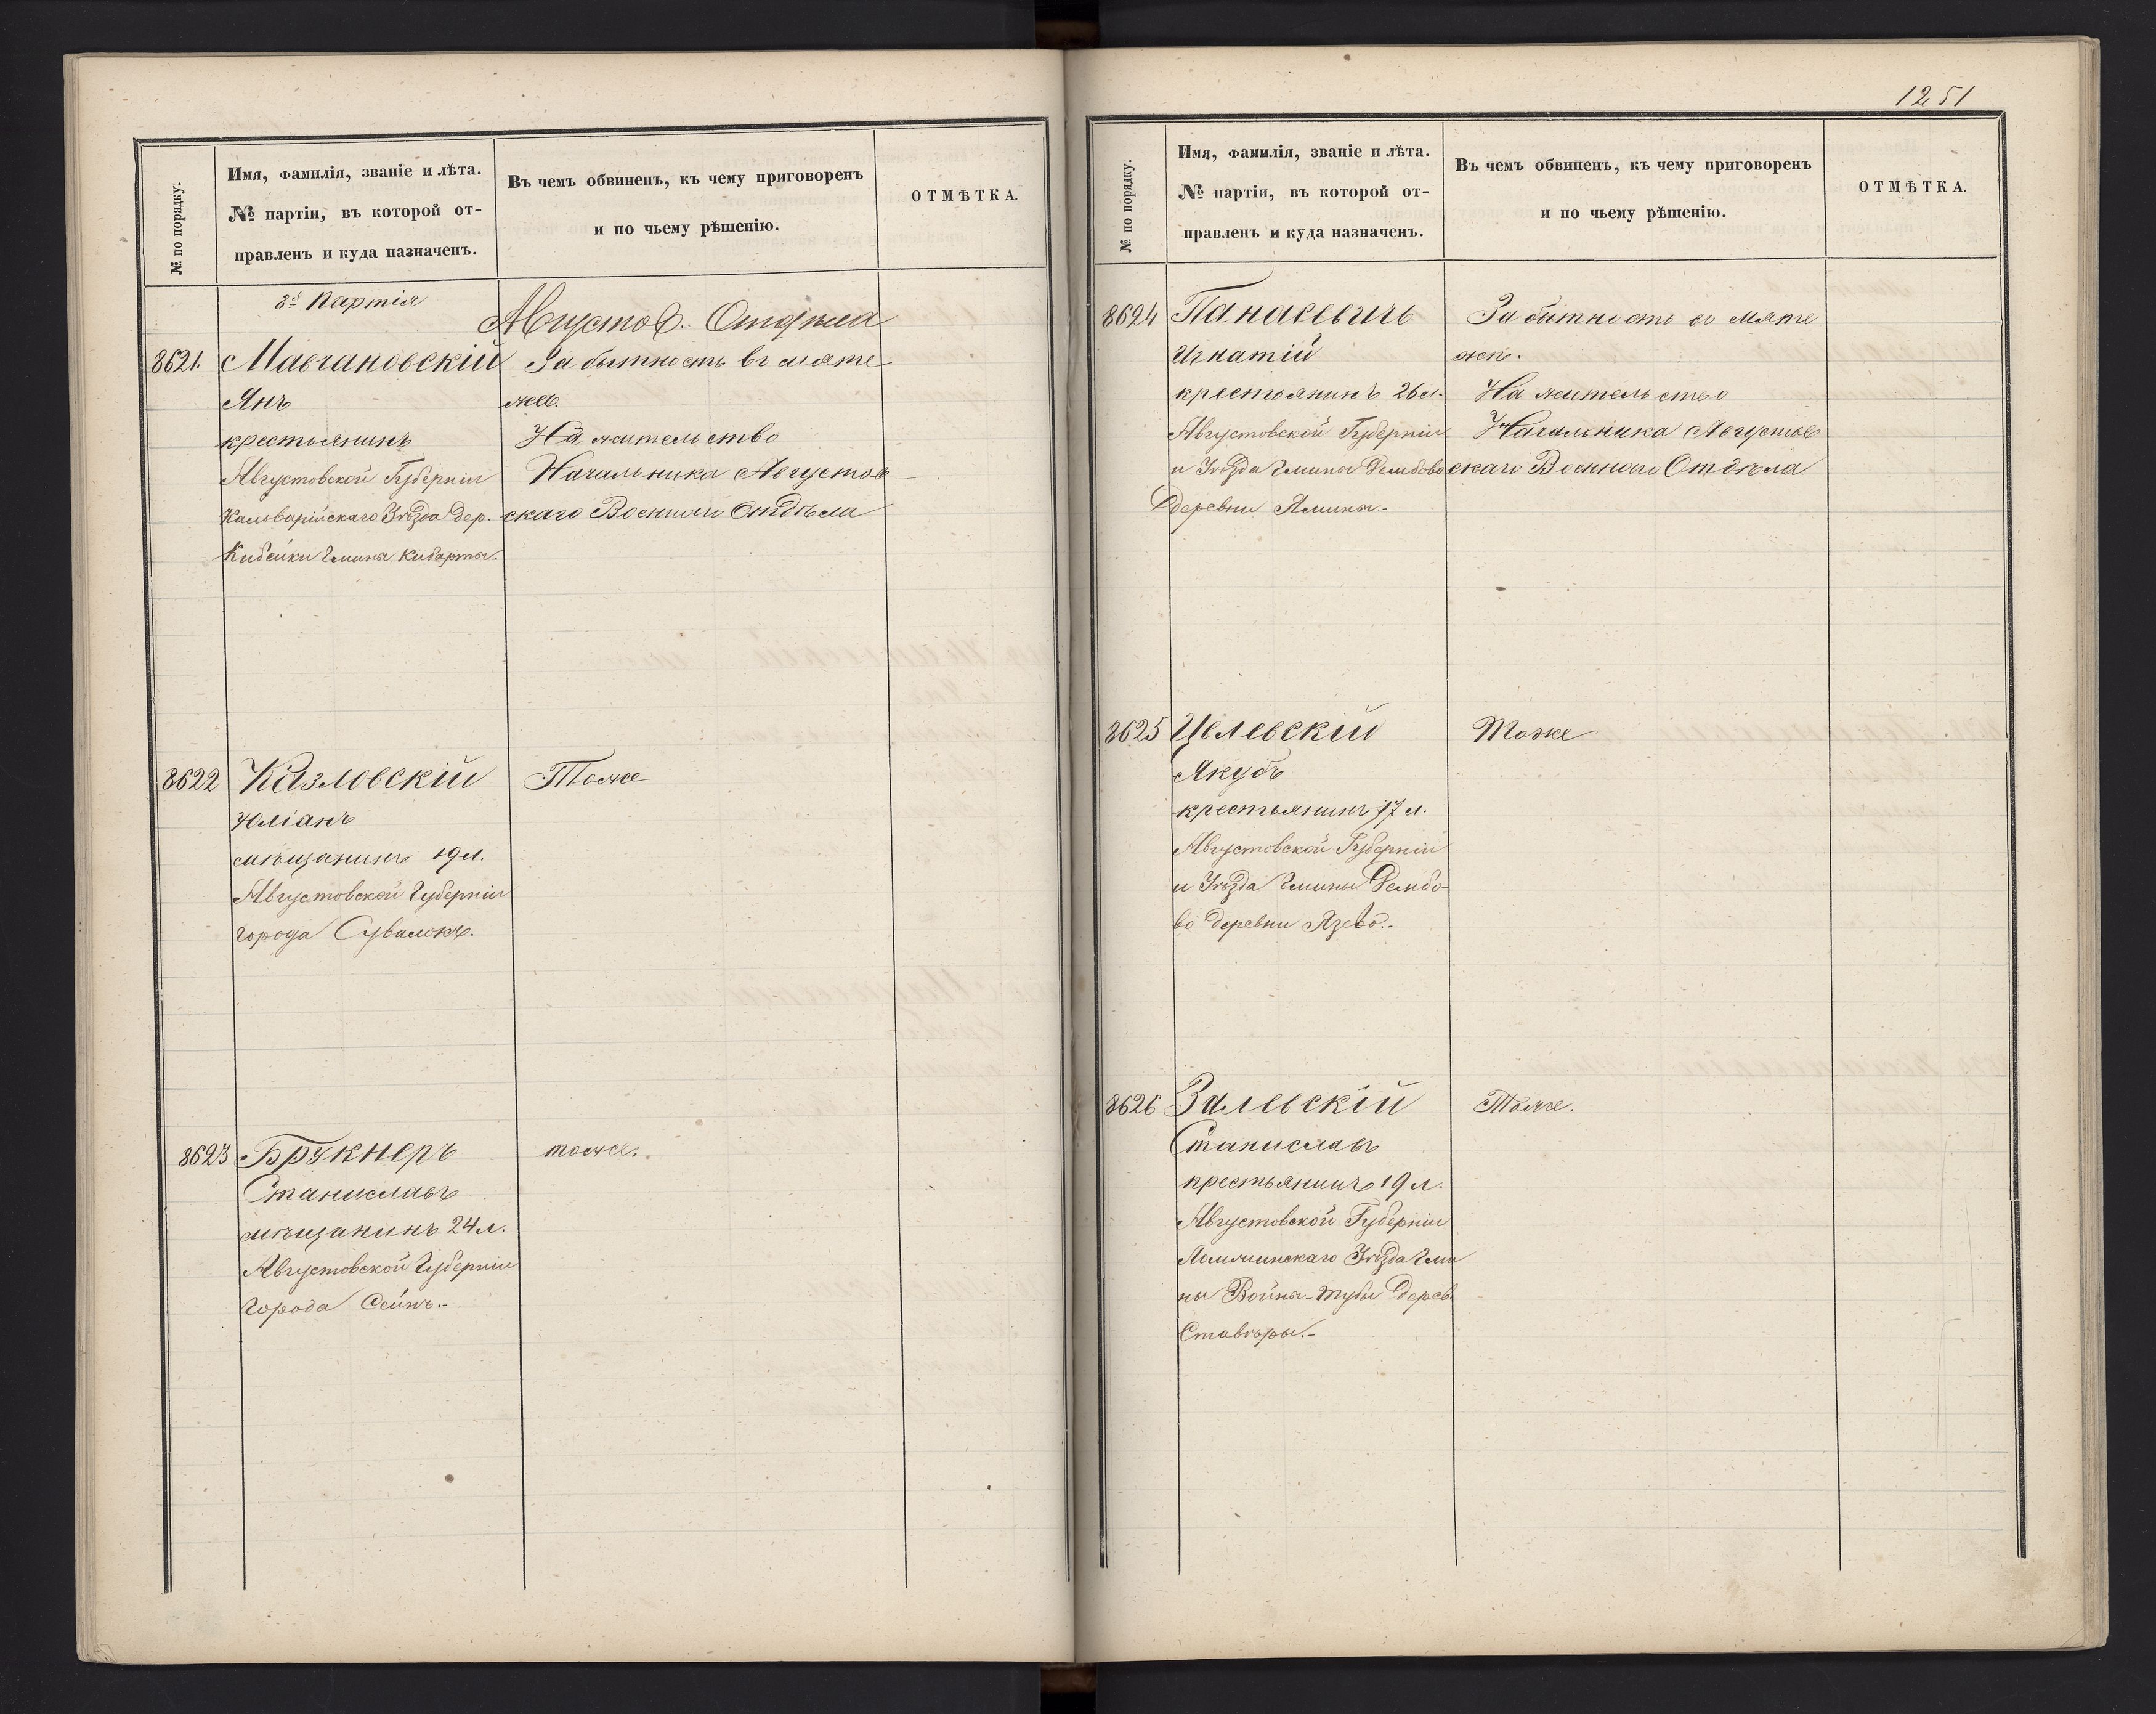 № по порядку.
Имя, фамилія, званіе и лѣта.
№ партіи, въ которой от-
правленъ и куда назначенъ.
Въ чемъ обвиненъ, къ чему приговоренъ
и по чьему рѣшенію.
ОТМѢТКА.
Партія
Августов. Отдѣла
8621. Мавчановскій
Янъ
крестьянинъ
Августовской Губерніи
Кальварійскаго Уѣзда дер.
Кибейки Гмины Кибарты.
За бытность въ мяте
жѣ.
На жительство
Начальника Августов
скаго Военнаго Отдѣла
8622 Казловскій
Юліанъ
мѣщанинъ 19 л.
Августовской Губерніи
города Сувалокъ.
Тоже
8623 Брукнеръ
Станиславъ
мѣщанинъ 24 л.
Августовской Губерніи
города Сейнъ.-
тоже.
1251
№ по порядку.
Имя, фамилія, званіе и лѣта.
№ партіи, въ которой от-
правленъ и куда назначенъ.
Въ чемъ обвиненъ, къ чему приговоренъ
и по чьему рѣшенію.
ОТМѢТКА.
8624 Панасевичъ
Игнатій
крестьянинъ 26 л.
Августовской Губерніи
и Уѣзда Гмины Дембово
деревни Ямины.-
За бытность въ мяте
жѣ.
На жительство
Начальника Августов
скаго Военнаго Отдѣла
8625 Цвлевскій
Якубъ
крестьянинъ 17 л.
Августовской Губерніи
и Уѣзда Гмины Дембо-
во деревни Язево.-
Тоже
8626 Залевскій
Станиславъ
крестьянинъ 19 л.
Августовской Губерніи
Ломжинскаго Уѣзда Гми
ны Войны- дерев.
Тоже.